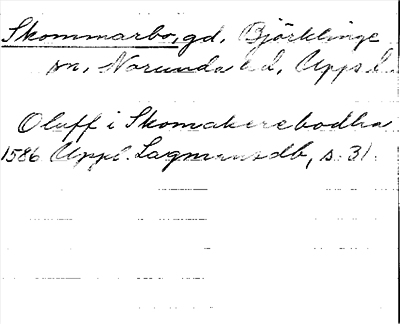 Skommarbo, gd, Björklinge
sn, Norunda hd, Upps l.
Oluff i Skomakerebodha
1586 Uppl. Lagmansdb, s. 31.